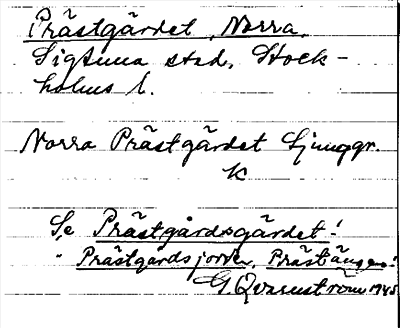 Prästgärdet, Norra,
Sigtuna stad, Stock-
holms l.
Norra Prästgärdet Ljunggr.
K
Se Prästgårdsgärdet!
" Prästgårdsjorden, Prästängen!
G. Qvarnström 1945